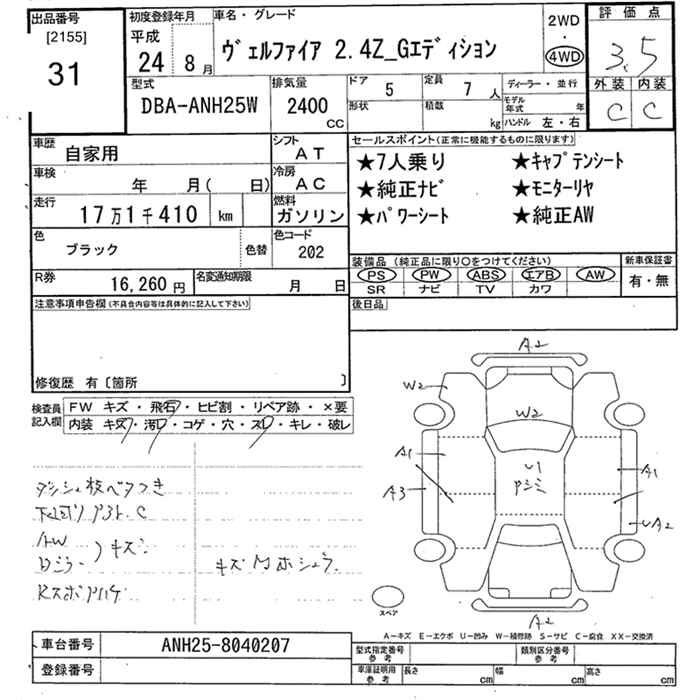 出品番号
[2155]
31
初度登録年月
平成
24 8月
車名・グレード
ヴェルファイア 2.4Z_Gエディション
2WD
・
4WD
評価点
3.5
外装 内装
C C
型式
DBA-ANH25W
排気量
2400
CC
ドア 5
形状
定員 7人
積載 kg
ディーラー・並行
モデル年式 年
ハンドル 左・右
車歴 自家用
シフト AT
車検 年 月( 日)
冷房 AC
走行 17万1千410 km
燃料 ガソリン
色 ブラック
色替
色コード 202
R券 16,260円
名変通知期限 月 日
セールスポイント(正常に機能するものに限ります)
★7人乗り ★キャプテンシート
★純正ナビ ★モニターリヤ
★パワーシート ★純正AW
装備品 (純正品に限り〇をつけてください)
PS PW ABS エアB AW
SR ナビ TV カワ
新車保証書
有・無
後日品
注意事項申告欄(不具合内容等は具体的に記入して下さい)
修復歴 有〔箇所 〕
検査員記入欄
FW キズ・飛石・ヒビ割・リペア跡・×要
内装 キズ・汚レ・コゲ・穴・スレ・キレ・破レ
ダッシュ板ベタつき
下廻り サビ.C
AW
キズ
A2
W2
W2
A1
A3
U1
A1
UA2
A2
スペア
A-キズ E-エクボ U-凹み W-補修跡 S-サビ C-腐食 XX-交換済
車台番号 ANH25-8040207
登録番号
型式指定番号 参考
類別区分番号 参考
車庫証明用 参考 長さ cm 幅 cm 高さ cm